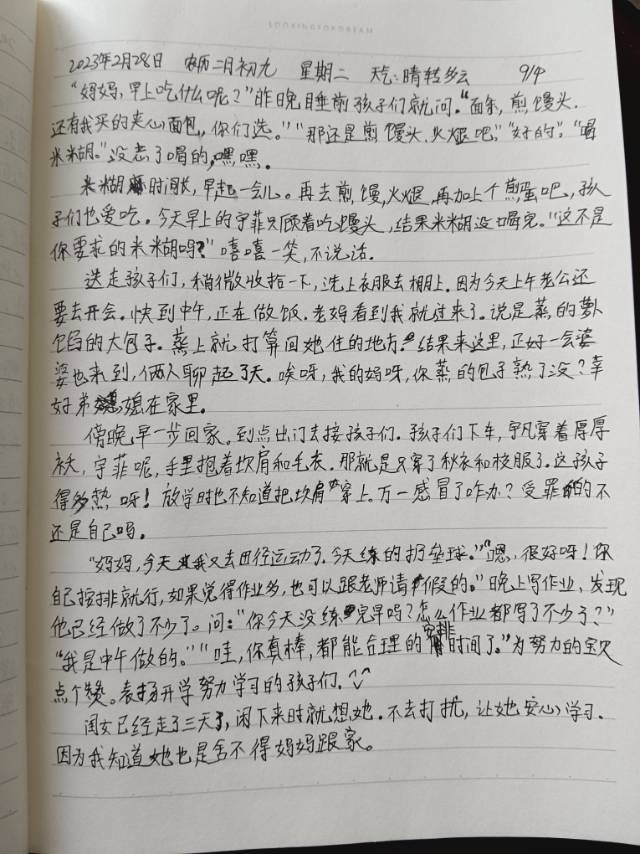 LOOKINGFORDREAM
2023年2月28日 农历二月初九 星期二 天气:晴转多云 9/4
“妈妈,早上吃什么呢?”昨晚睡前孩子们就问。“面条,煎馒头.
还有我买的夹心面包,你们选。”“那还是煎馒头、火煺吧,”“好的”,“喝
米糊。”没忘了喝的,嘿嘿。
米糊时间长,早起一会儿。再去煎馒,火煺,再加上个煎蛋吧,孩
子们也爱吃。今天早上的宇菲只顾着吃馒头,结果米糊没喝完。“这不是
你要求的米糊吗?”嘻嘻一笑,不说话。
送走孩子们,稍微收拾一下,洗上衣服去棚上。因为今天上午老公还
要去开会。快到中午,正在做饭.老妈看到我就过来了。说是蒸的萝卜
馅的大包子。蒸上就打算回她住的地方。结果来这里,正好一会婆
婆也来到,俩人聊起了天。唉呀,我的妈呀,你蒸的包子熟了没?幸
好弟媳在家里。
傍晚早一步回家。到点出门去接孩子们。孩子们下车,宇凡穿着厚厚
袄,宇菲呢,手里抱着坎肩和毛衣。那就是只穿了秋衣和校服了。这孩子
得多热呀!放学时也不知道把坎肩穿上。万一感冒了咋办?受罪的不
还是自己吗。
“妈妈,今天我又去田径运动了。今天练的扔垒球。”“嗯,很好呀!你
自己按排就行,如果觉得作业多,也可以跟老师请假的。”晚上写作业,发现
他已经做了不少了。问:“你今天没练完早吗?怎么作业都写了不少了?”
“我是中午做的。”“哇,你真棒,都能合理的安排时间了。”为努力的宝贝
点个赞。表扬开学努力学习的孩子们.
闺女已经走了三天了,闲下来时就想她.不去打扰,让她安心学习.
因为我知道她也是舍不得妈妈跟家。